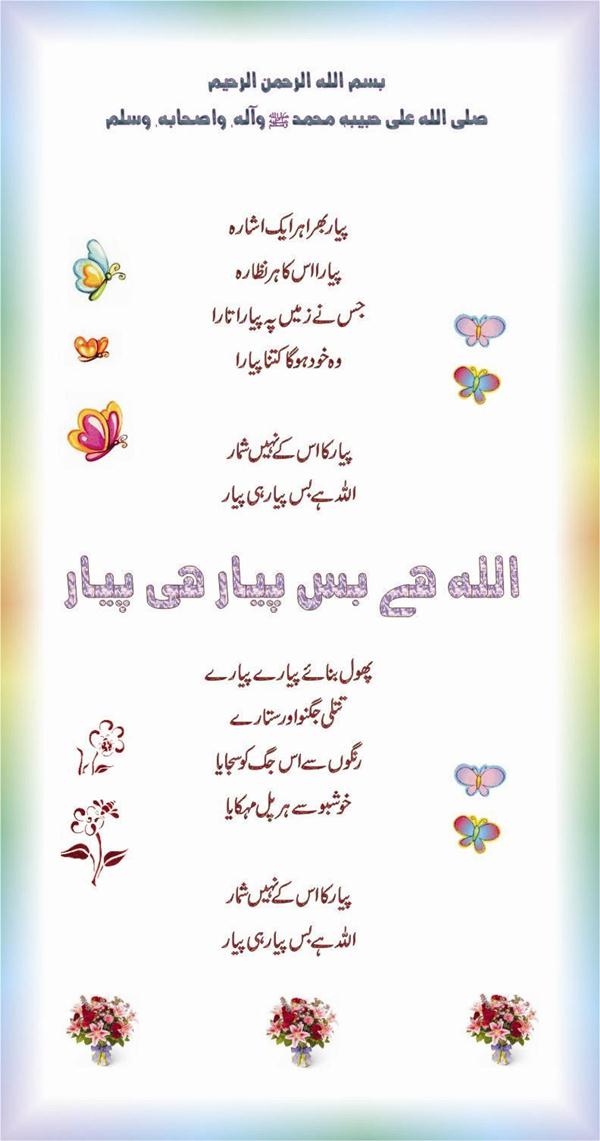 بسم الله الرحمن الرحيم
صلى الله على حبيبه محمد ﷺ وآله، واصحابه، وسلم
پیار بھرا ہر ایک اشارہ
پیارا اس کا ہر نظارہ
جس نے زمیں پہ پیار اتارا
وہ خود ہوگا کتنا پیارا
پیار کا اس کے نہیں شمار
اللہ ہے بس پیار ہی پیار
الله هے بس پیار هی پیار
پھول بنائے پیارے پیارے
تتلی جگنو اور ستارے
رنگوں سے اس جگ کو سجایا
خوشبو سے ہر پل مہکایا
پیار کا اس کے نہیں شمار
اللہ ہے بس پیار ہی پیار